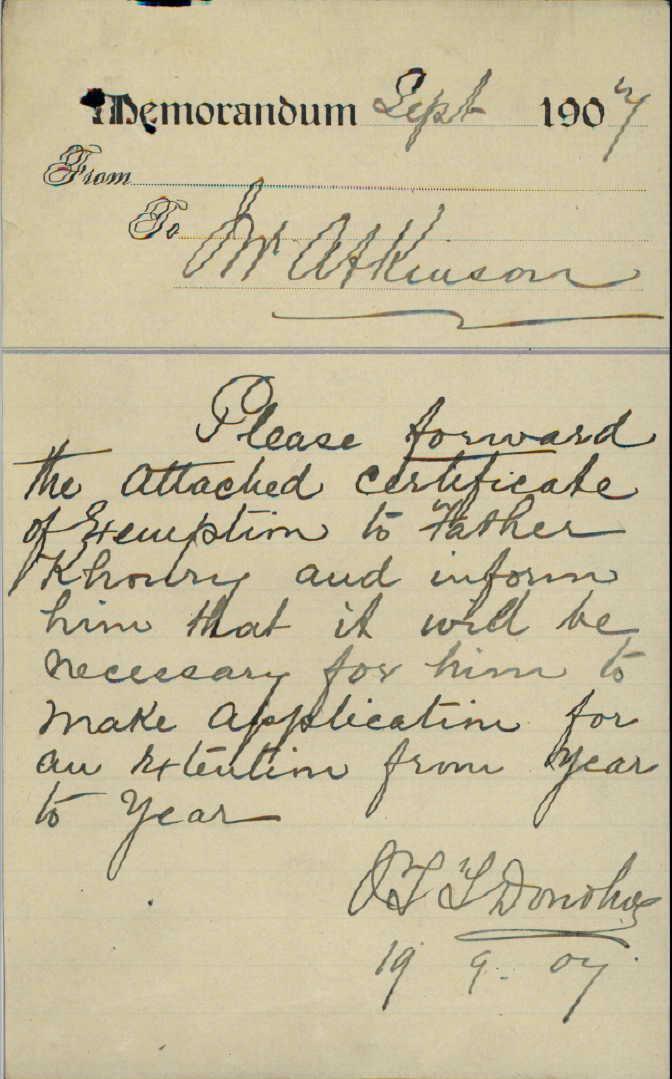 Memorandum Sept 1907
From
To Mr Atkinson
Please forward
the attached certificate
of Exemption to Father
Khoury and inform
him that it will be
necessary for him to
make application for
an Extention from year
to year
Donohue
19 9. 07.